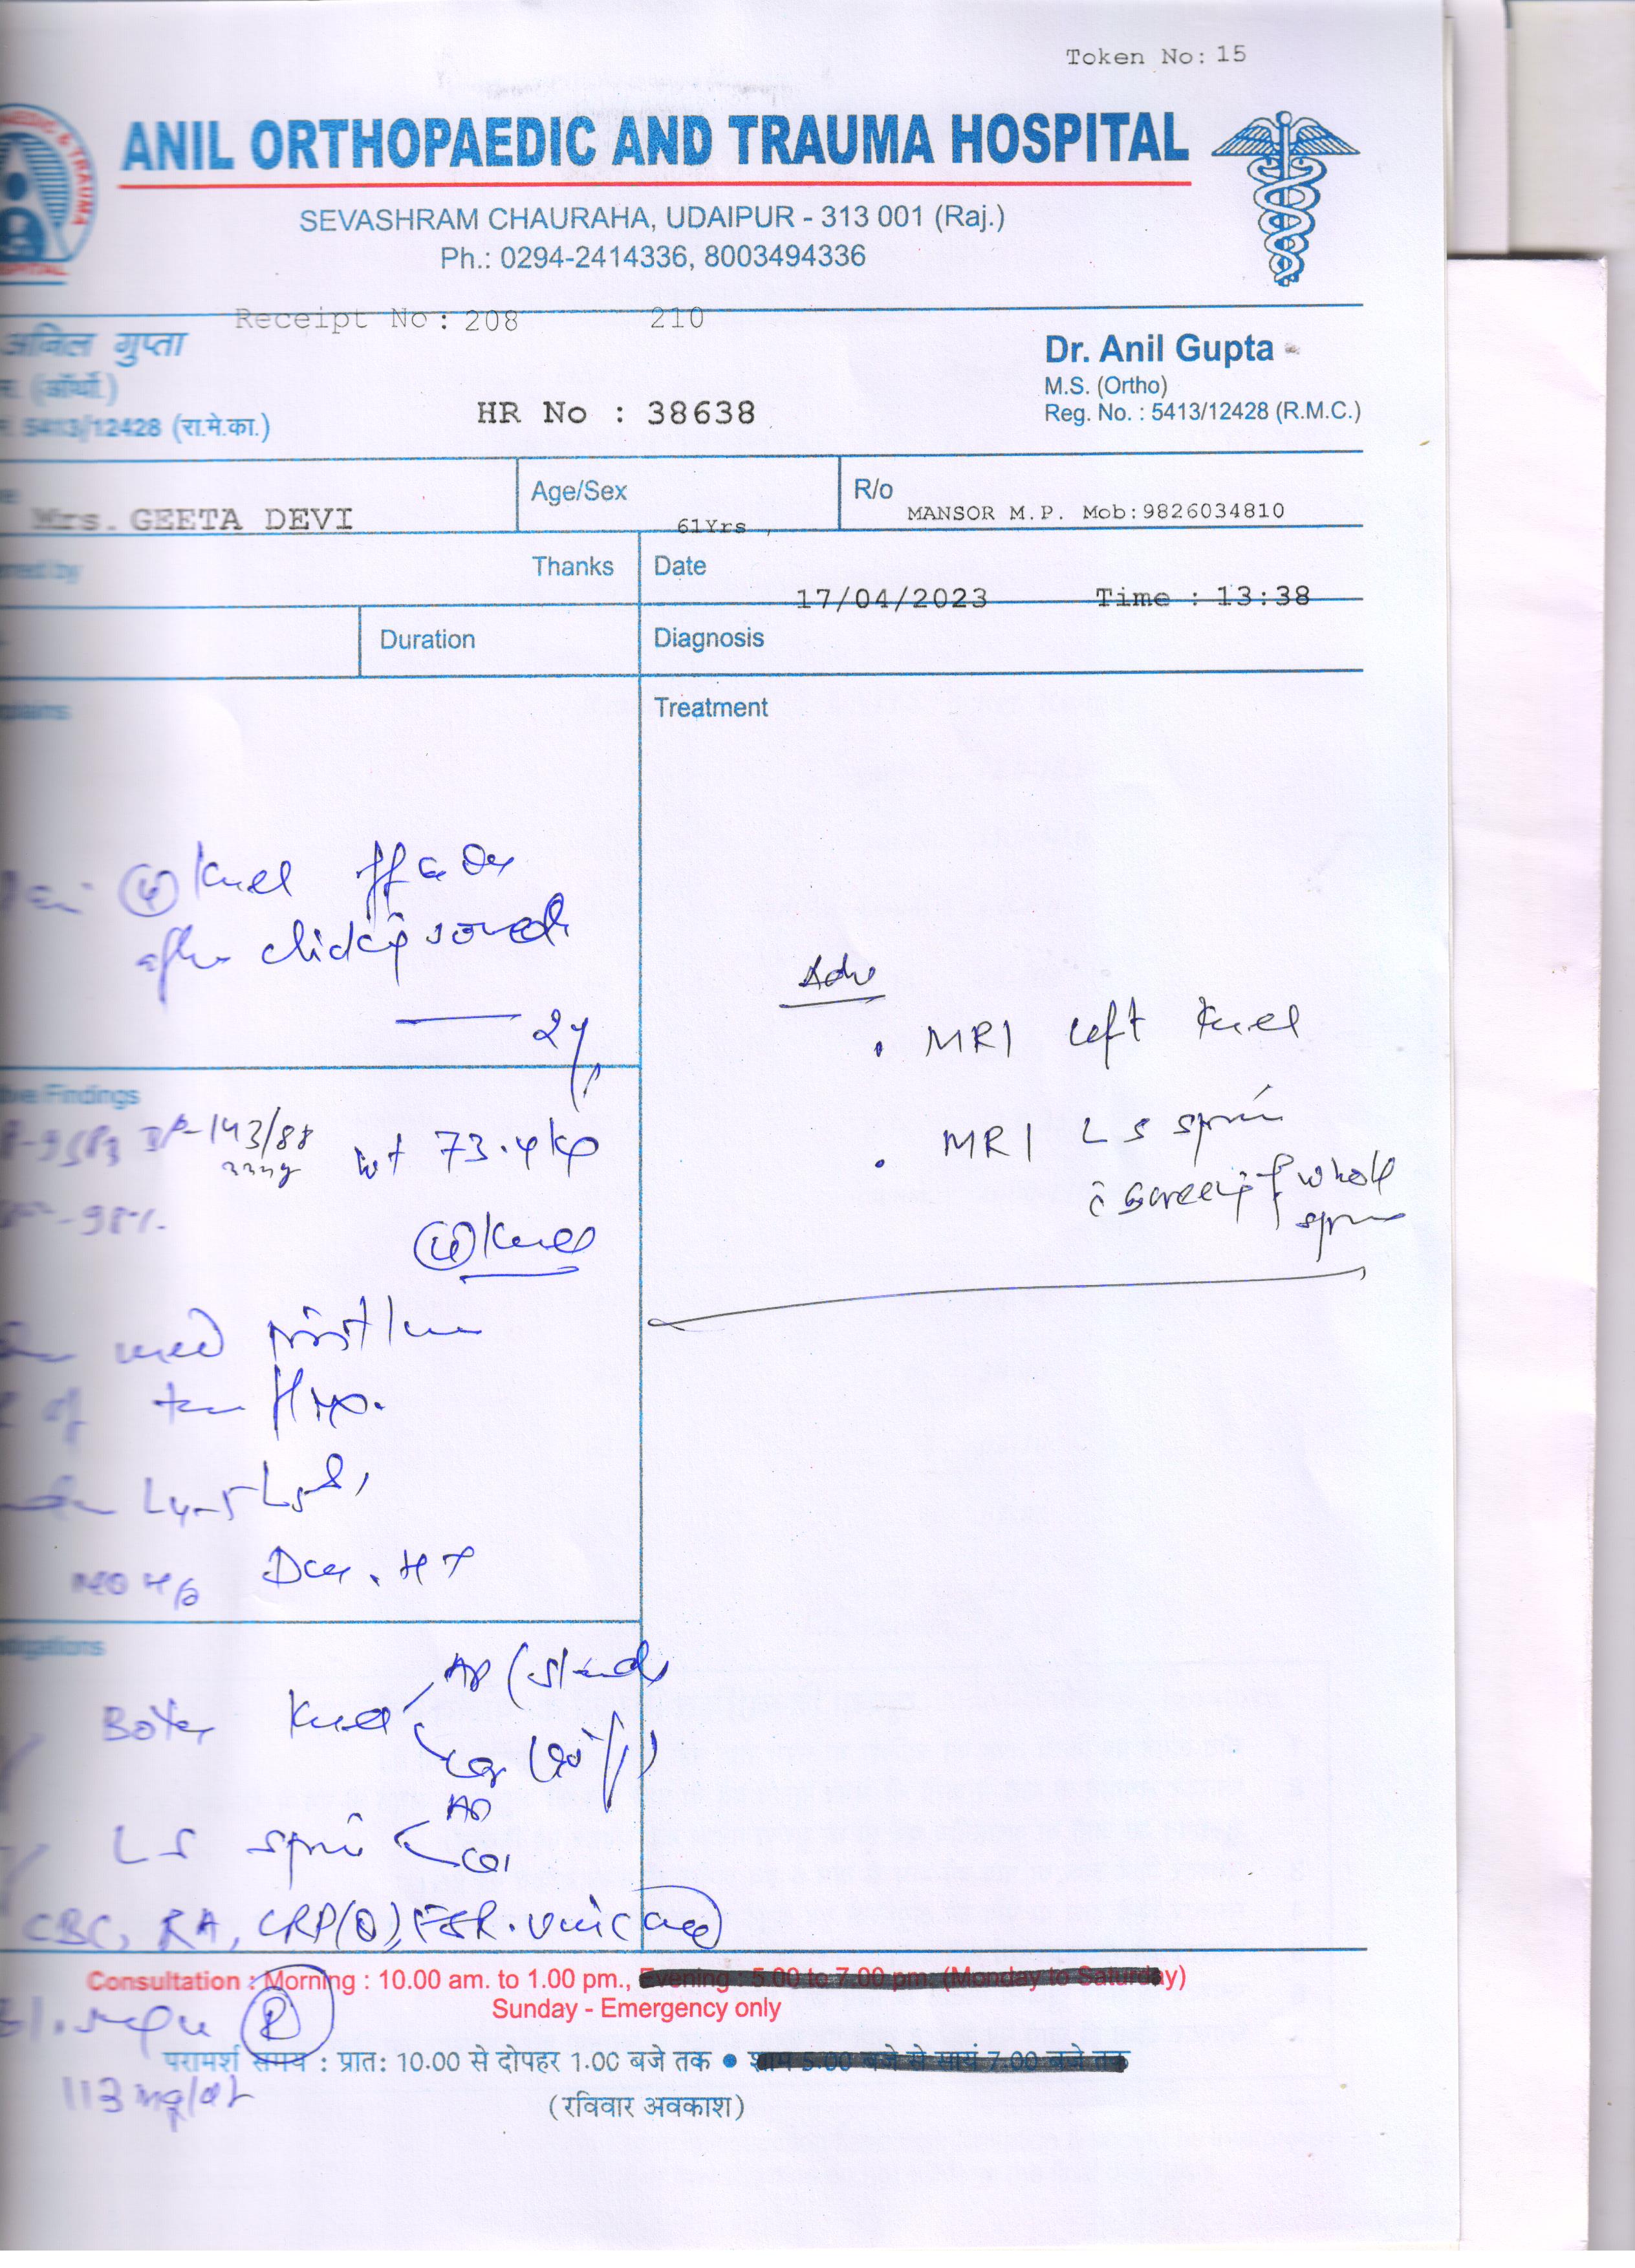 Token No: 15
ANIL ORTHOPAEDIC AND TRAUMA HOSPITAL
SEVASHRAM CHAURAHA, UDAIPUR - 313 001 (Raj.)
Ph.: 0294-2414336, 8003494336
Receipt No: 208 210
अनिल गुप्ता
Dr. Anil Gupta
(ऑर्थो.)
M.S. (Ortho)
5413/12428 (रा.मे.का.)
HR No : 38638
Reg. No. : 5413/12428 (R.M.C.)
Mrs. GEETA DEVI
Age/Sex
61Yrs ,
R/o
MANSOR M.P. Mob:9826034810
Thanks
Date
17/04/2023 Time : 13:38
Duration
Diagnosis
Treatment
Knee
after clicking sound
2y
Findings
BP-143/88
wt 73.4kg
-98%
Knee
med joint line
of
L4-5 L5S1
Both Knee
AP (stand
LS spine
AP
CBC, RA, CRP(Q), ESR. Uric acid
Adv
. MRI Left Knee
. MRI LS spine
c screening of whole
spine
Consultation : Morning : 10.00 am. to 1.00 pm., Evening : 5.00 to 7.00 pm. (Monday to Saturday)
Sunday - Emergency only
Bl. sugar (R)
परामर्श समय : प्रात: 10.00 से दोपहर 1.00 बजे तक • शाम 5.00 बजे से सायं 7.00 बजे तक
113 mg/dL
(रविवार अवकाश)